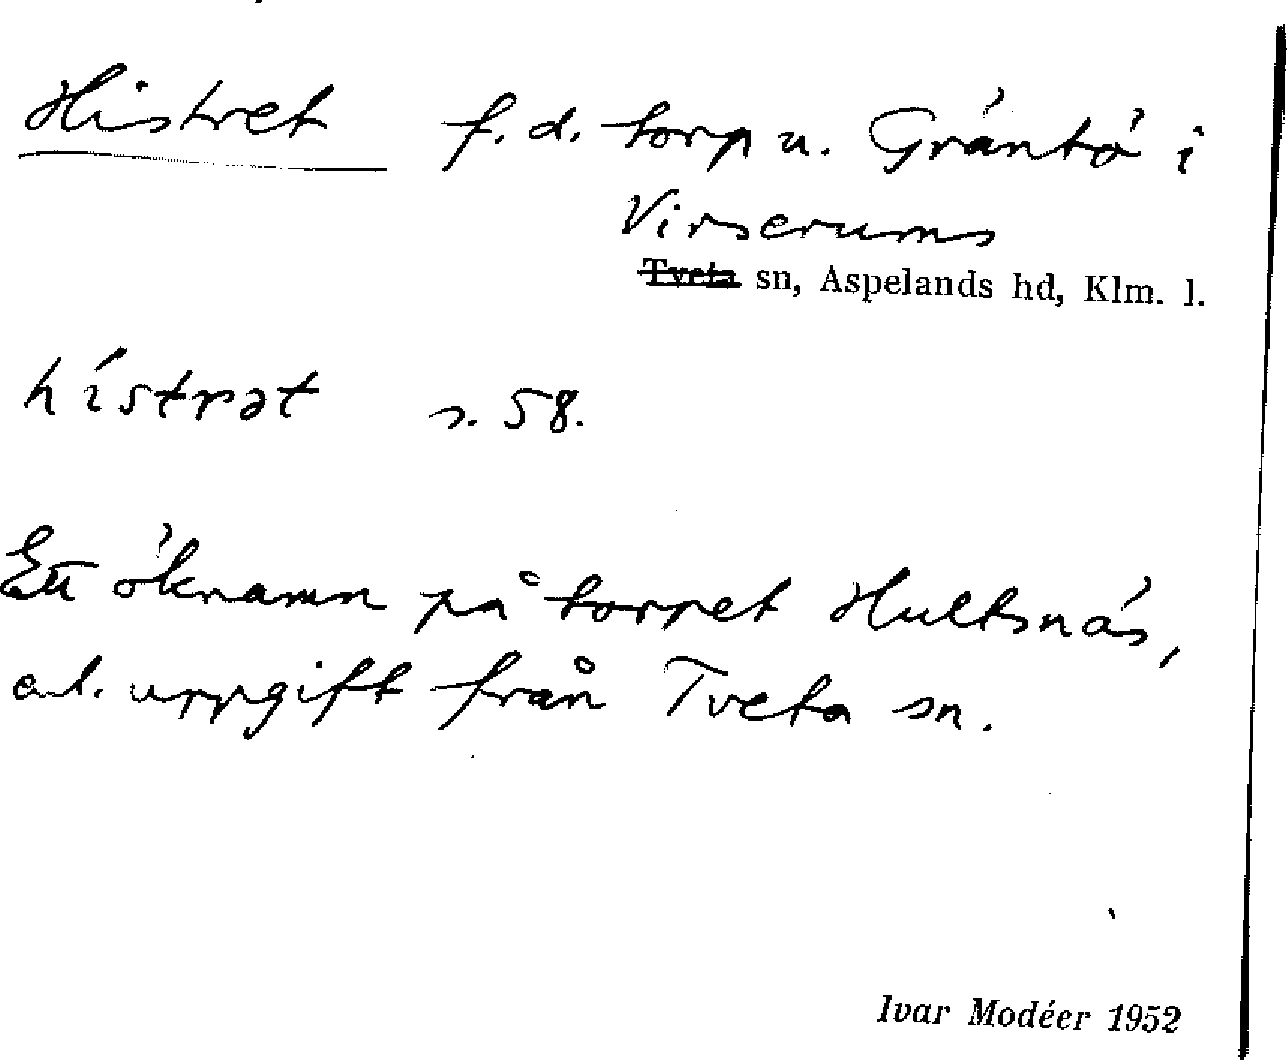 Histret f. d. torp u. Gräntö i
Virserums
Tveta sn, Aspelands hd, Klm. l.
hístrət s. 58.
Ett öknamn på torpet Hultsnäs,
enl. uppgift från Tveta sn.
Ivar Modéer 1952